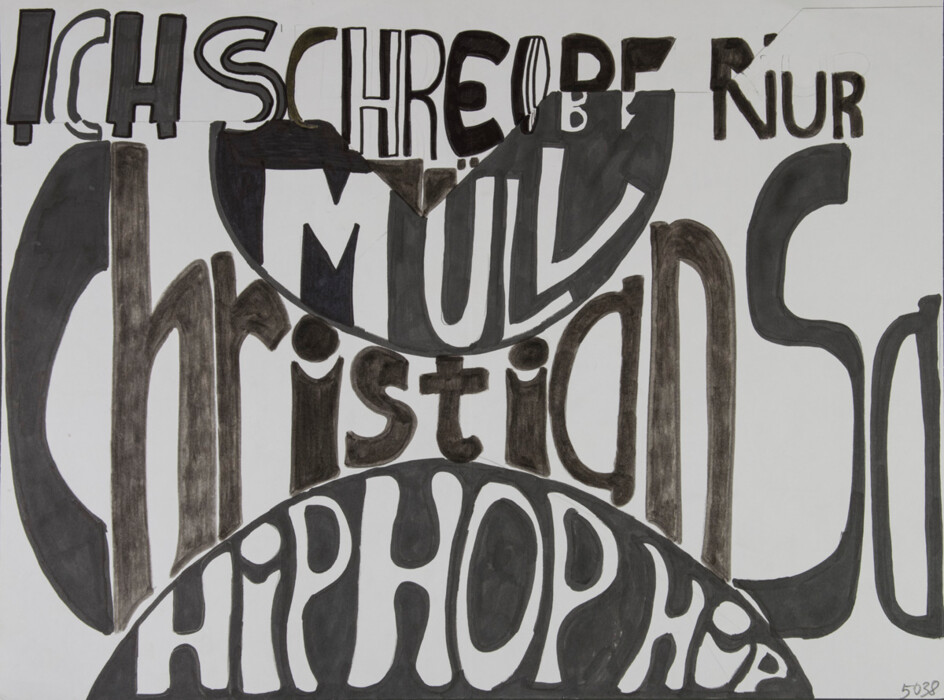 ICH SCHREIBE NUR
MÜLL
Christian Sa
HiPHOP HiP
5038